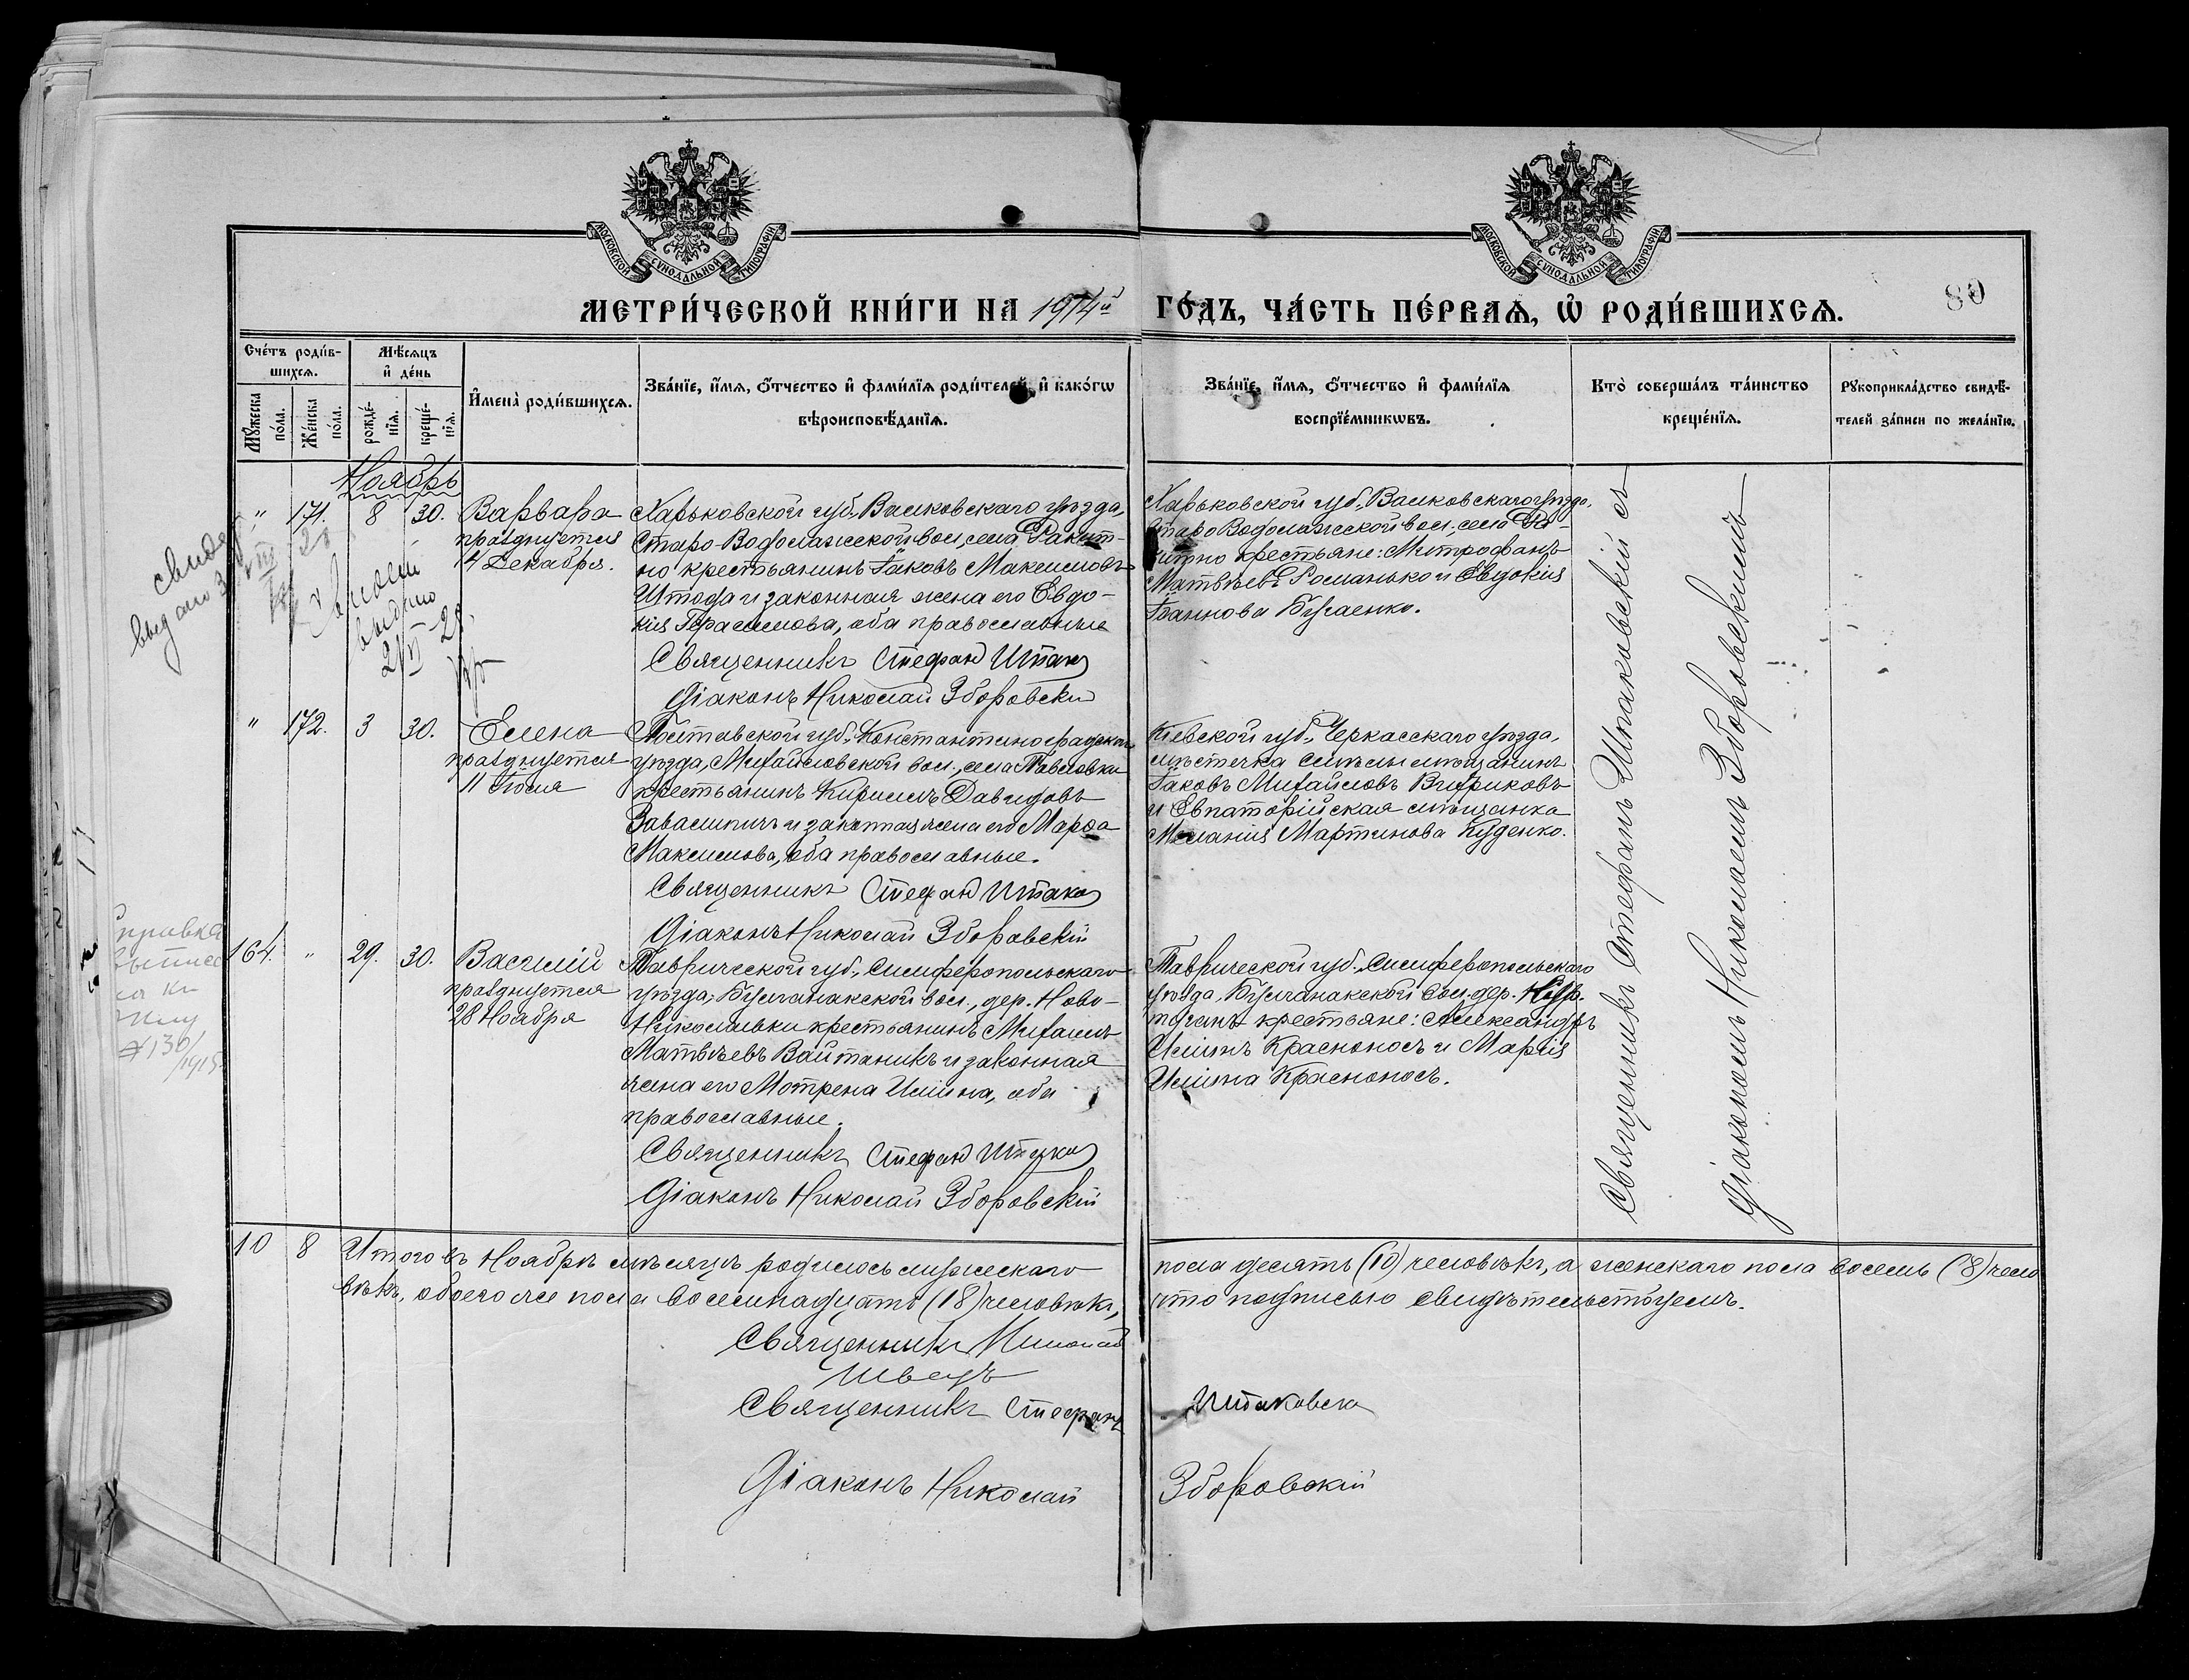 МОСКОВСКОЙ СѴНОДАЛЬНОЙ ТИПОГРАФІИ
МОСКОВСКОЙ СѴНОДАЛЬНОЙ ТИПОГРАФІИ
МЕТРИ́ЧЕСКОЙ КНИ́ГИ НА 1914й ГО́ДЪ, ЧА́СТЬ ПЕ́РВАѦ, Ѡ РОДИ́ВШИХСѦ.
80
Сче́тъ роди́в-
шихсѧ.
Мѣ́сѧцъ
и де́нь
Мꙋ́жеска
по́ла.
Же́нска
по́ла.
рожде́-
нїѧ.
креще́-
нїѧ.
И҆мена̀ роди́вшихсѧ.
Зва́нїе, и҆́мѧ, ѻ҆́тчество и҆ фами́лїѧ роди́телей, и҆ како́гѡ
вѣроисповѣ́данїѧ.
Зва́нїе, и҆́мѧ, ѻ҆́тчество и҆ фами́лїѧ
воспрїе́мникѡвъ.
Кто̀ соверша́лъ та́инство
креще́нїѧ.
Рꙋкоприкла́дство свидѣ́-
телей за́писи по жела́нїю.
Ноябрь
" 171. 8 30. Варвара
празднуется
4 Декабря.
Харьковской губ. Валковскаго уѣзда,
Старо-Водолажской вол., села Ракит-
но крестьянинъ Іаковъ Максимовъ
Штода и законная жена его Евдо-
кія Герасимова, оба православные
Священникъ Стефан Штак
Діаконъ Николай Зборовски
Харьковской губ. Валковскаго уѣзда,
Старо Водолажской вол., села Ра-
китно крестьяне: Митрофанъ
Матвѣевъ Романько и Евдокія
Іоаннова Бугаенко.
Священникъ Стефанъ Штаковскій съ
Діакономъ Николаемъ Зборовскимъ
выдано
" 172. 3 30. Елена
празднуется
11 Іюля
Полтавской губ. Константиноградскаго
уѣзда, Михайловской вол., села Павловки
крестьянинъ Кириллъ Давидовъ
и законная жена его Марѳа
Максимова, оба православные.
Священникъ Стефан Штако
Діаконъ Николай Зборовскій
Кіевской губ. Черкасскаго уѣзда,
мѣстечка Смѣлы мѣщанинъ
Іаковъ Михайловъ
и Евпаторійская мѣщанка
Меланія Мартинова Куденко.
Справка
130/1915.
164. " 29. 30. Василій
празднуется
28 Ноября
Таврической губ. Симферопольскаго
уѣзда, Булганакской вол., дер. Ново-
Николаевки крестьянинъ Михаилъ
Матвѣевъ Войтаникъ и законная
жена его Мотрена Иліина, оба
православные.
Священникъ Стефан Штако
Діаконъ Николай Зборовскій
Таврической губ. Симферопольскаго
уѣзда, Булганакской вол. дер.
крестьяне: Александръ
Иліинъ Красноносъ и Марія
Иліина Красноносъ.
10 8 Итого въ Ноябрѣ мѣсяцѣ родилось мужескаго пола десять (10) человѣкъ, а женскаго пола восемь (8) чело
вѣкъ, обоего же пола восемнадцать (18) человѣкъ, что подписью свидѣтельствуемъ.
Священникъ Николай
Швецъ
Священникъ Стефанъ Штаковск
Діаконъ Николай Зборовскій